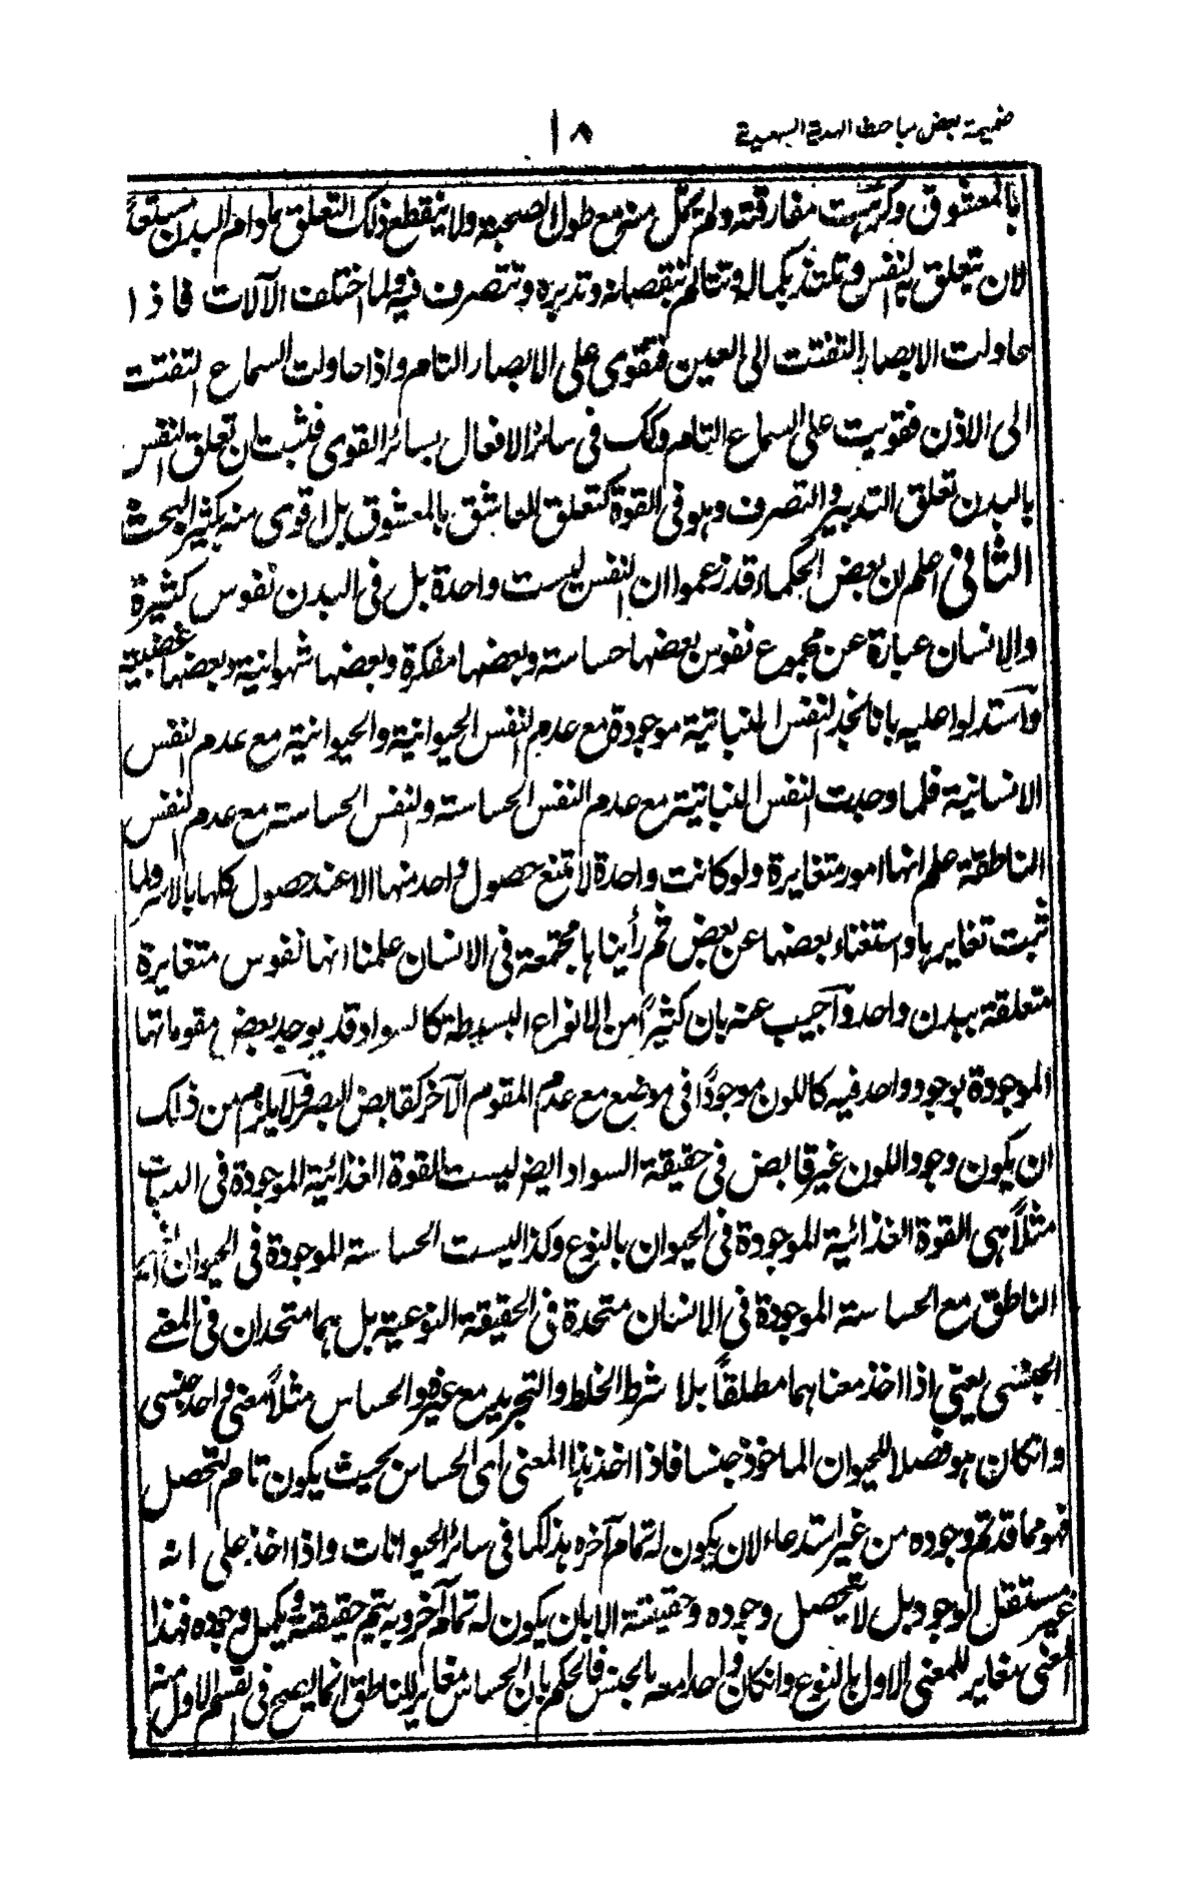 ضميمة بعض مباحث الهدية السعيدية
١٨
بالمعشوق وكرهت مفارقته ولم يمل منه مع طول الصحبة ولا ينقطع ذلك التعلق مادام البدن مستعدا
لان يتعلق به النفس وتلتذ بكماله وتتالم بنقصانه وتدبره وتتصرف فيه ولما اختلف الآلات فاذا
حاولت الابصار التفتت الى العين فتقوى على الابصار التام واذا حاولت السماع التفتت
الى الاذن فقويت على السماع التام وكك فى سائر الافعال بسائر القوى فثبت ان تعلق النفس
بالبدن تعلق التدبير والتصرف وهو فى القوة كتعلق العاشق بالمعشوق بل اقوى منه بكثير البحث
الثانى اعلم ان بعض الحكماء قد زعموا ان النفس ليست واحدة بل فى البدن نفوس كثيرة
والانسان عبارة عن مجموع نفوس بعضها حساسة وبعضها مفكرة وبعضها شهوانية وبعضها غضبية
واستدلوا عليه بانا نجد النفس النباتية موجودة مع عدم النفس الحيوانية والحيوانية مع عدم النفس
الانسانية فلما وجدت النفس النباتية مع عدم النفس الحساسة والنفس الحساسة مع عدم النفس
الناطقة علم انها امور متغايرة ولو كانت واحدة لامتنع حصول واحد منها الا عند حصول كلها بالاسر ولما
ثبت تغايرها واستغناء بعضها عن بعض ثم رأيناها مجتمعة فى الانسان علمنا انها نفوس متغايرة
متعلقة ببدن واحد وآجيب عنه بان كثيراً من الانواع البسيطة كالسواد قد يوجد بعض مقوماتها
الموجودة بوجود واحد فيه كاللون موجوداً فى موضع مع عدم المقوم الآخر كقابض البصر فلا يلزم من ذلك
ان يكون وجود اللون غير قابض فى حقيقة السواد ايض ليست القوة الغذائية الموجودة فى النبات
مثلاً هى القوة الغذائية الموجودة فى الحيوان بالنوع وكذا ليست الحساسة الموجودة فى الحيوان الغير
الناطق مع الحساسة الموجودة فى الانسان متحدة فى الحقيقة النوعية بل هما متحدان فى المعنے
الجنسى يعنى اذا اخذ معناهما مطلقاً بلا شرط الخلط والتجريد مع غيره والحساس مثلاً معنى واحد جنسى
وانكان هو فصلا للحيوان الماخوذ جنسا فاذا اخذ هذا المعنى اى الحساس بحيث يكون تام التحصل
فهو مما قد تم وجوده من غير استدعاء لان يكون له تمام آخره هذا كما فى سائر الحيوانات واذا اخذ على انه
غير مستقل الوجود بل لا يتحصل وجوده وحقيقته الا بان يكون له تمام آخر وبه يتم حقيقته ويكمل وجوده فهذا
المعنى مغاير للمعنى الاول بالنوع وانكان واحدا معه بالجنس فالحكم بان الحساس مغاير للناطق انما يصح فى القسم الاول منه